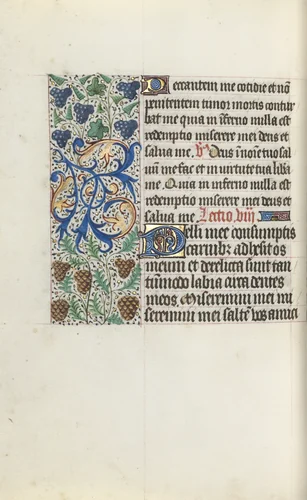 Peccantem me cotidie et nõ
penitentem timor mortis contur
bat me quia in īferno nulla est
redemptio miserere mei deus et
salua me. v̄s Deus ī noīe tuo sal
uum me fac et in uirtute tua libā
me. Quia in inferno nulla est
redemptio miserere mei deus et
salua me Lectio viii
Pelli mee consumptis
carnibꝫ adhesit os
meum et derelicta sunt tan
tūmodo labia circa dentes
meos. Miseremini mei mi
seremini mei saltē vos amici